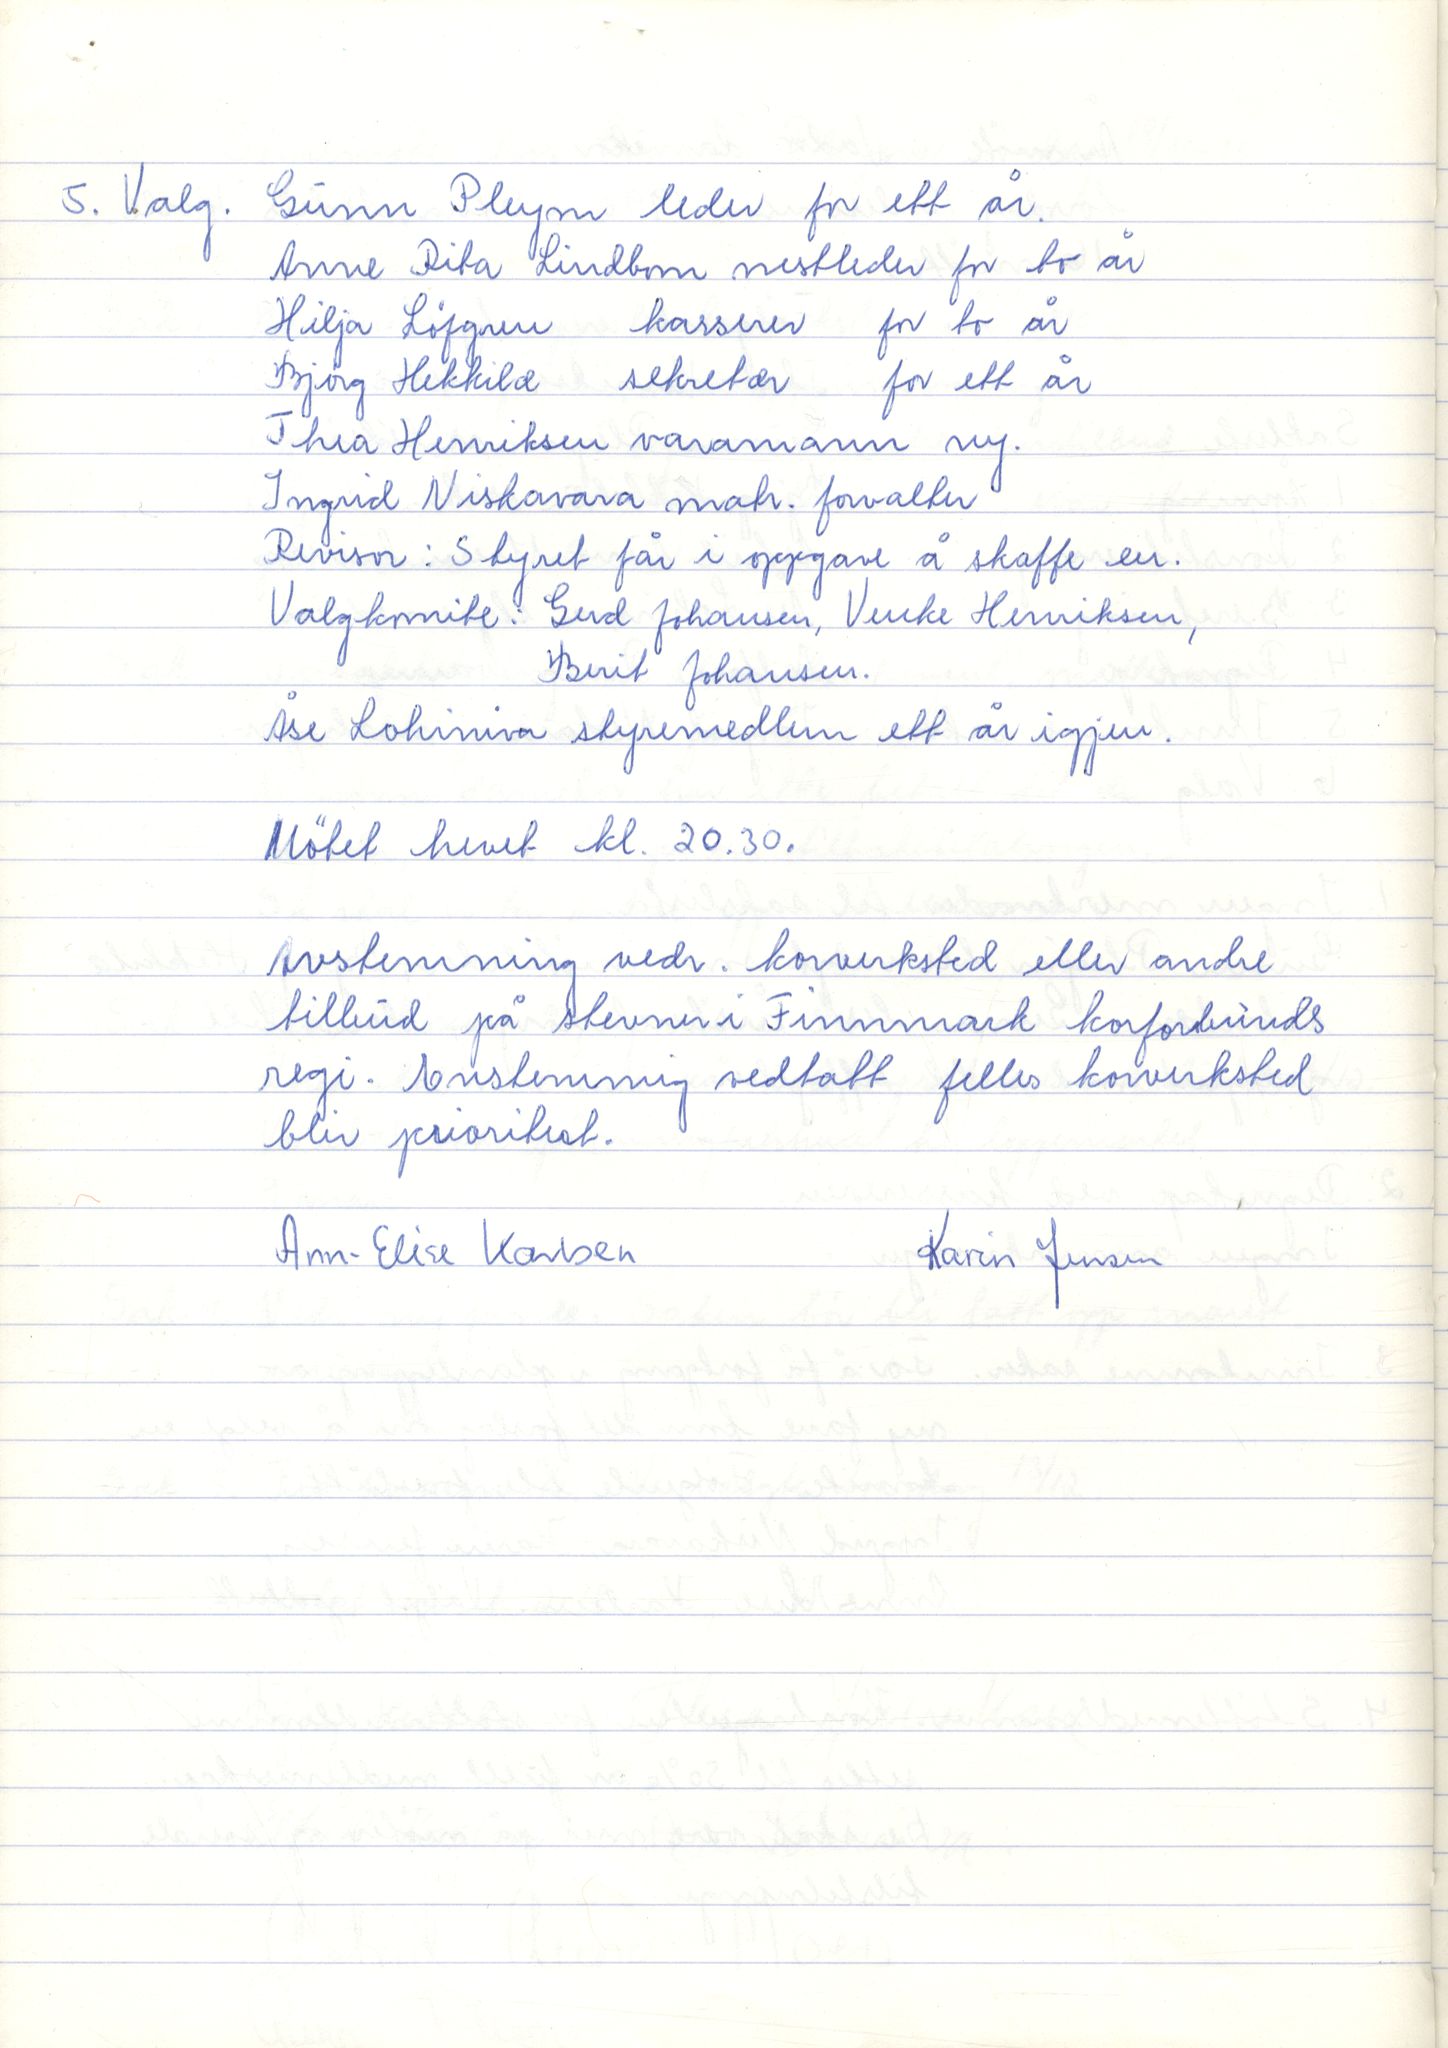 5. Valg. Gunn Pleym leder for ett år.
Anne Rita Lindbom nestleder for to år
Hilja Löfgren kasserer for to år
Björg Hekkilä sekretær for ett år
Thea Henriksen varamann ny.
Ingrid Niskavara matr. forvalter
Revisor: Styret får i oppgave å skaffe en.
Valgkomite: Gerd Johansen, Venke Henriksen,
Berit Johansen.
Åse Lohiniva styremedlem ett år igjen.
Mötet hevet kl. 20.30.
Avstemning vedr. korverksted eller andre
tilbud på stevner i Finnmark korforbunds
regi. Enstemmig vedtatt felles korverksted
blir prioritert.
Ann-Elise Karlsen Karin Jensen